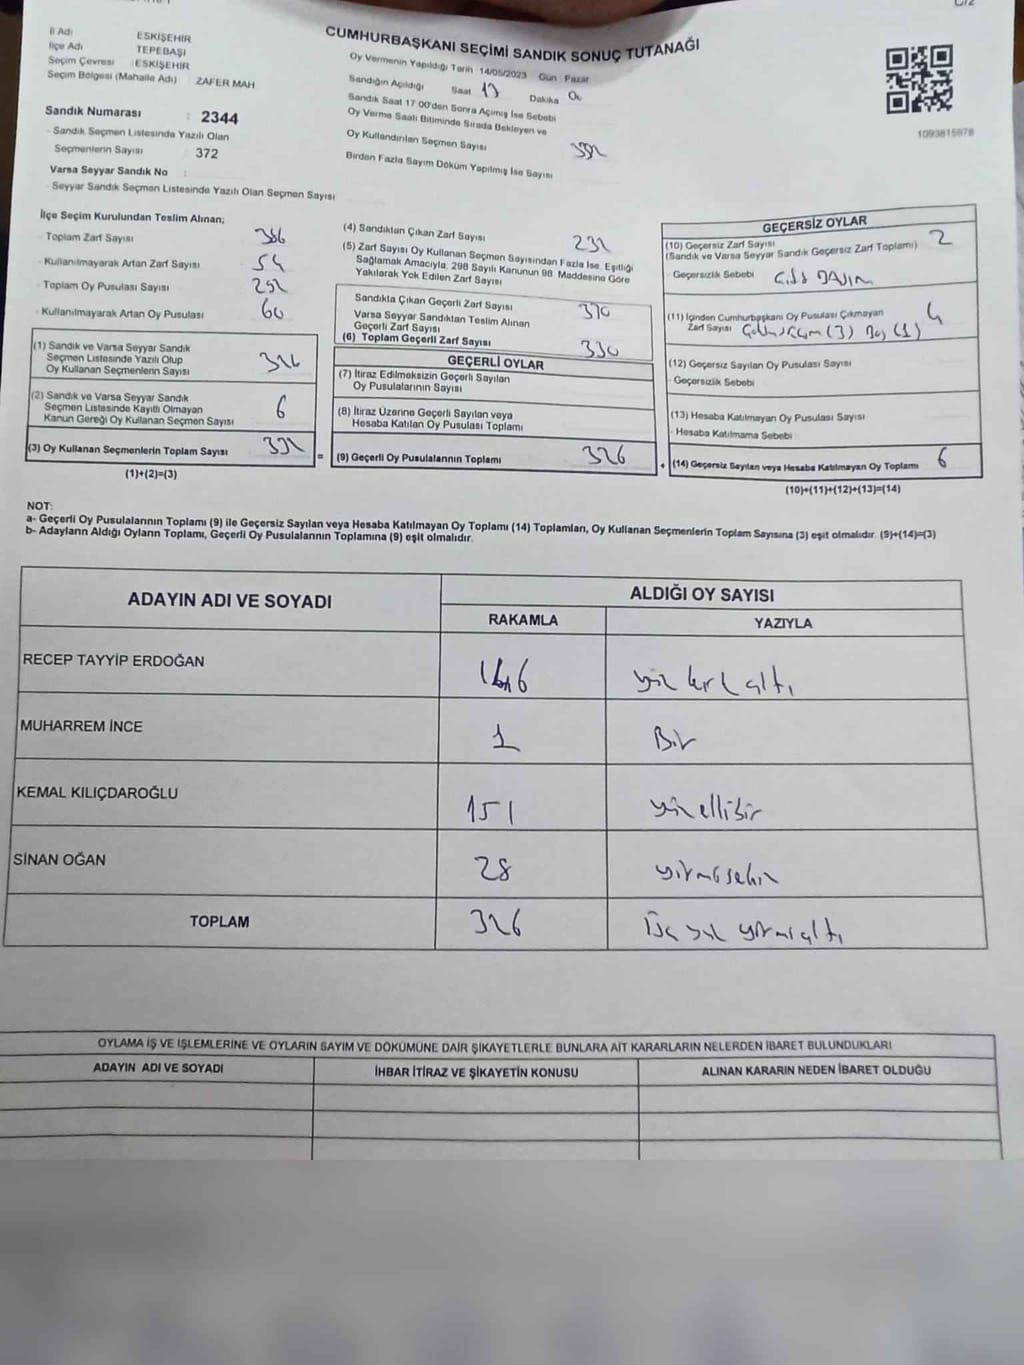 İl Adı ESKİŞEHİR
İlçe Adı TEPEBAŞI
Seçim Çevresi : ESKİŞEHİR
Seçim Bölgesi (Mahalle Adı) ZAFER MAH
Sandık Numarası : 2344
- Sandık Seçmen Listesinde Yazılı Olan
Seçmenlerin Sayısı 372
Varsa Seyyar Sandık No :
- Seyyar Sandık Seçmen Listesinde Yazılı Olan Seçmen Sayısı
CUMHURBAŞKANI SEÇİMİ SANDIK SONUÇ TUTANAĞI
Oy Vermenin Yapıldığı Tarih 14/05/2023 Gün : Pazar
Sandığın Açıldığı Saat 17 Dakika 00
Sandık Saat 17:00'den Sonra Açımış İse Sebebi
Oy Verme Saati Bitiminde Sırada Bekleyen ve
Oy Kullandırılan Seçmen Sayısı 332
Birden Fazla Sayım Döküm Yapılmış İse Sayısı
1093815978
İlçe Seçim Kurulundan Teslim Alınan;
- Toplam Zarf Sayısı 386
- Kullanılmayarak Artan Zarf Sayısı 54
- Toplam Oy Pusulası Sayısı
- Kullanılmayarak Artan Oy Pusulası 60
(1) Sandık ve Varsa Seyyar Sandık
Seçmen Listesinde Yazılı Olup
Oy Kullanan Seçmenlerin Sayısı 326
(2) Sandık ve Varsa Seyyar Sandık
Seçmen Listesinde Kayıtlı Olmayan
Kanun Gereği Oy Kullanan Seçmen Sayısı 6
(3) Oy Kullanan Seçmenlerin Toplam Sayısı 332 =
(1)+(2)=(3)
(4) Sandıktan Çıkan Zarf Sayısı 232
(5) Zarf Sayısı Oy Kullanan Seçmen Sayısından Fazla İse, Eşitliği
Sağlamak Amacıyla, 298 Sayılı Kanunun 98. Maddesine Göre
Yakılarak Yok Edilen Zarf Sayısı
Sandıkta Çıkan Geçerli Zarf Sayısı 330
Varsa Seyyar Sandıktan Teslim Alınan
Geçerli Zarf Sayısı
(6) Toplam Geçerli Zarf Sayısı 330
GEÇERLİ OYLAR
(7) İtiraz Edilmeksizin Geçerli Sayılan
Oy Pusulalarının Sayısı
(8) İtiraz Üzerine Geçerli Sayılan veya
Hesaba Katılan Oy Pusulası Toplamı
(9) Geçerli Oy Pusulalarının Toplamı 326 +
GEÇERSİZ OYLAR
(10) Geçersiz Zarf Sayısı 2
(Sandık ve Varsa Seyyar Sandık Geçersiz Zarf Toplamı)
- Geçersizlik Sebebi
(11) İçinden Cumhurbaşkanı Oy Pusulası Çıkmayan 4
Zarf Sayısı (3) Boş (1)
(12) Geçersiz Sayılan Oy Pusulası Sayısı
- Geçersizlik Sebebi
(13) Hesaba Katılmayan Oy Pusulası Sayısı
- Hesaba Katılmama Sebebi
(14) Geçersiz Sayılan veya Hesaba Katılmayan Oy Toplamı 6
(10)+(11)+(12)+(13)=(14)
NOT:
a- Geçerli Oy Pusulalarının Toplamı (9) ile Geçersiz Sayılan veya Hesaba Katılmayan Oy Toplamı (14) Toplamları, Oy Kullanan Seçmenlerin Toplam Sayısına (3) eşit olmalıdır. (9)+(14)=(3)
b- Adayların Aldığı Oyların Toplamı, Geçerli Oy Pusulalarının Toplamına (9) eşit olmalıdır.
ADAYIN ADI VE SOYADI ALDIĞI OY SAYISI
RAKAMLA YAZIYLA
RECEP TAYYİP ERDOĞAN 146 yüz kırk altı
MUHARREM İNCE 1 Bir
KEMAL KILIÇDAROĞLU 151 yüzellibir
SİNAN OĞAN 28 yirmisekiz
TOPLAM 326 Üç yüz yirmi altı
OYLAMA İŞ VE İŞLEMLERİNE VE OYLARIN SAYIM VE DÖKÜMÜNE DAİR ŞİKAYETLERLE BUNLARA AİT KARARLARIN NELERDEN İBARET BULUNDUKLARI
ADAYIN ADI VE SOYADI İHBAR İTİRAZ VE ŞİKAYETİN KONUSU ALINAN KARARIN NEDEN İBARET OLDUĞU